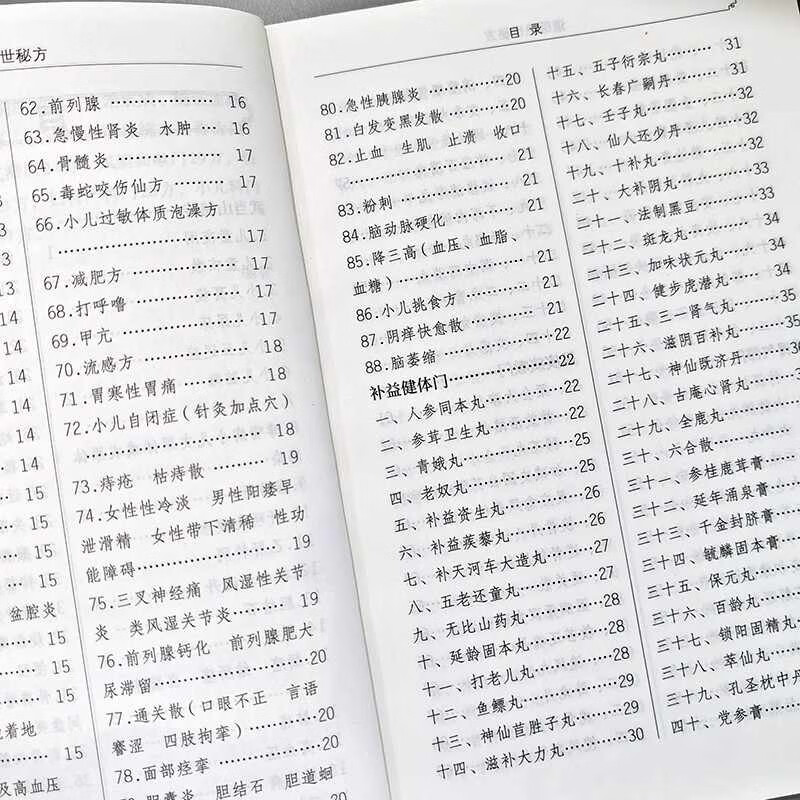 世秘方
13
13
14
14
14
14
15
15
盆腔炎
15
15
15
着地
15
及高血压
62.前列腺 …………… 16
63.急慢性肾炎 水肿 …… 16
64.骨髓炎 …………… 17
65.毒蛇咬伤仙方 ……… 17
66.小儿过敏体质泡澡方
…………………… 17
67.减肥方 …………… 17
68.打呼噜 …………… 17
69.甲亢 …………… 17
70.流感方 …………… 18
71.胃寒性胃痛 ……… 18
72.小儿自闭症(针灸加点穴)
…………………… 18
73.痔疮 枯痔散 ……… 19
74.女性性冷淡 男性阳痿早
泄滑精 女性带下清稀 性功
能障碍 …………… 19
75.三叉神经痛 风湿性关节
炎 类风湿关节炎 …… 19
76.前列腺钙化 前列腺肥大
尿滞留 …………… 20
77.通关散(口眼不正 言语
謇涩 四肢拘挛) …… 20
78.面部痉挛 ………… 20
胆囊炎 胆结石 胆道蛔
20
目录
80.急性胰腺炎 ……… 20
81.白发变黑发散 ……… 20
82.止血 生肌 止溃 收口
…………………… 21
83.粉刺 …………… 21
84.脑动脉硬化 ……… 21
85.降三高(血压、血脂、
血糖) …………… 21
86.小儿挑食方 ……… 21
87.阴痒快愈散 ……… 21
88.脑萎缩 …………… 22
补益健体门 …………… 22
一、人参固本丸 ……… 22
二、参茸卫生丸 ……… 22
三、青娥丸 …………… 25
四、老奴丸 …………… 25
五、补益资生丸 ……… 26
六、补益蒺藜丸 ……… 26
七、补天河车大造丸 …… 27
八、五老还童丸 ……… 27
九、无比山药丸 ……… 28
十、延龄固本丸 ……… 28
十一、打老儿丸 ……… 28
十二、鱼鳔丸 ………… 29
十三、神仙苣胜子丸 …… 30
十四、滋补大力丸 …… 30
十五、五子衍宗丸 …… 31
十六、长春广嗣丹 …… 31
十七、壬子丸 ………… 32
十八、仙人还少丹 …… 32
十九、十补丸 ………… 32
二十、大补阴丸 ……… 33
二十一、法制黑豆 …… 33
二十二、斑龙丸 ……… 34
二十三、加味状元丸 …… 34
二十四、健步虎潜丸 …… 34
二十五、三一肾气丸 …… 35
二十六、滋阴百补丸 …… 35
二十七、神仙既济丹 ……
二十八、古庵心肾丸 ……
二十九、全鹿丸 ………
三十、六合散 …………
三十一、参桂鹿茸膏 ……
三十二、延年涌泉膏 ……
三十三、千金封脐膏 ……
三十四、毓麟固本膏 ……
三十五、保元丸 ………
三十六、百龄丸 ………
三十七、锁阳固精丸
三十八、萃仙丸 ………
三十九、孔圣枕中丹
四十、党参膏 …………